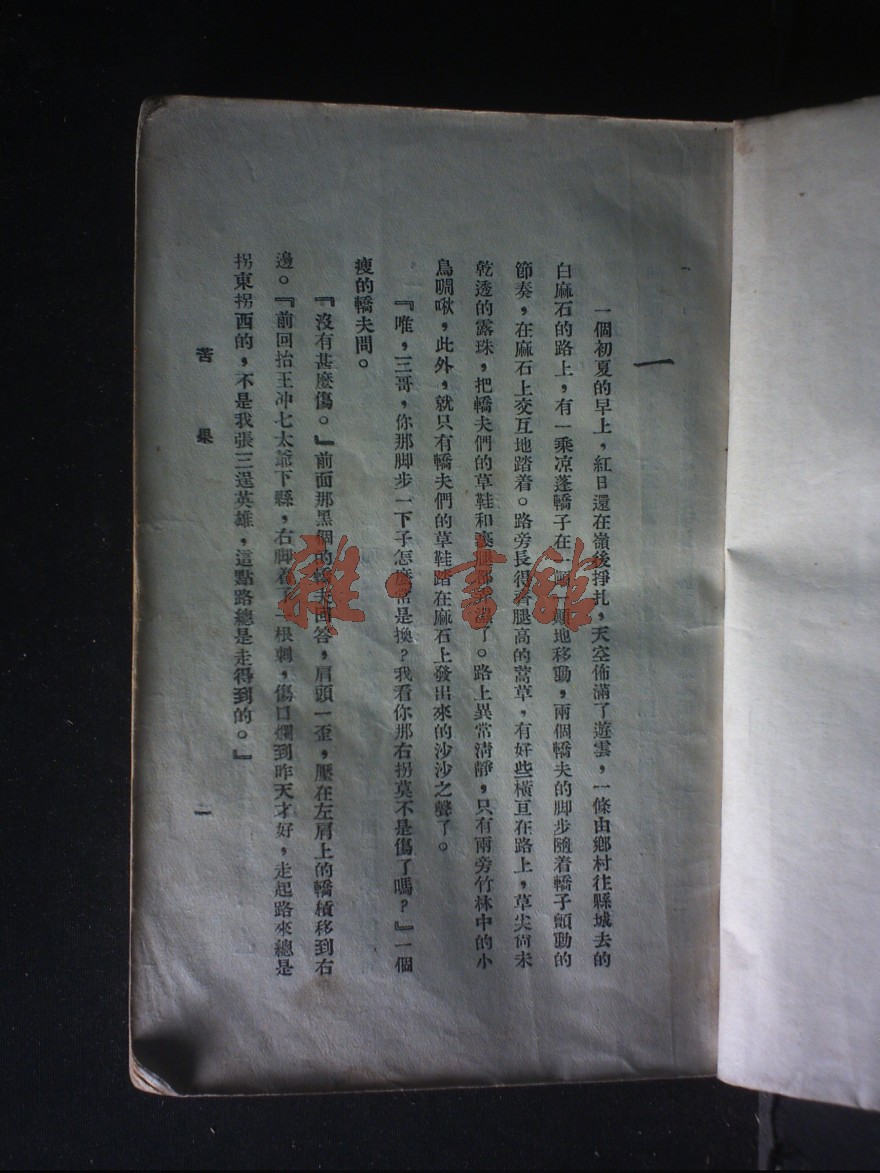 一
一個初夏的早上，紅日還在嶺後掙扎，天空佈滿了遊雲，一條由鄉村往縣城去的
白麻石的路上，有一乘凉蓬轎子在一顚一顚地移動，兩個轎夫的脚步隨着轎子顫動的
節奏，在麻石上交互地踏着。路旁長得齊腿高的蒿草，有好些橫亘在路上，草尖尙未
乾透的露珠，把轎夫們的草鞋和裹腿都弄濕了。路上異常清靜，只有兩旁竹林中的小
鳥啁啾，此外，就只有轎夫們的草鞋踏在麻石上發出來的沙沙之聲了。
『唯，三哥，你那脚步一下子怎麽常是換？我看你那右拐莫不是傷了嗎？』一個
瘦的轎夫問。
『沒有甚麽傷。』前面那黑個的轎夫回答，肩頭一歪，壓在左肩上的轎槓移到右
邊。『前回抬王冲七太爺下縣，右脚着了一根刺，傷口爛到昨天才好，走起路來總是
拐東拐西的，不是我張三逞英雄，這點路總是走得到的。』
苦果
一
雜·書館